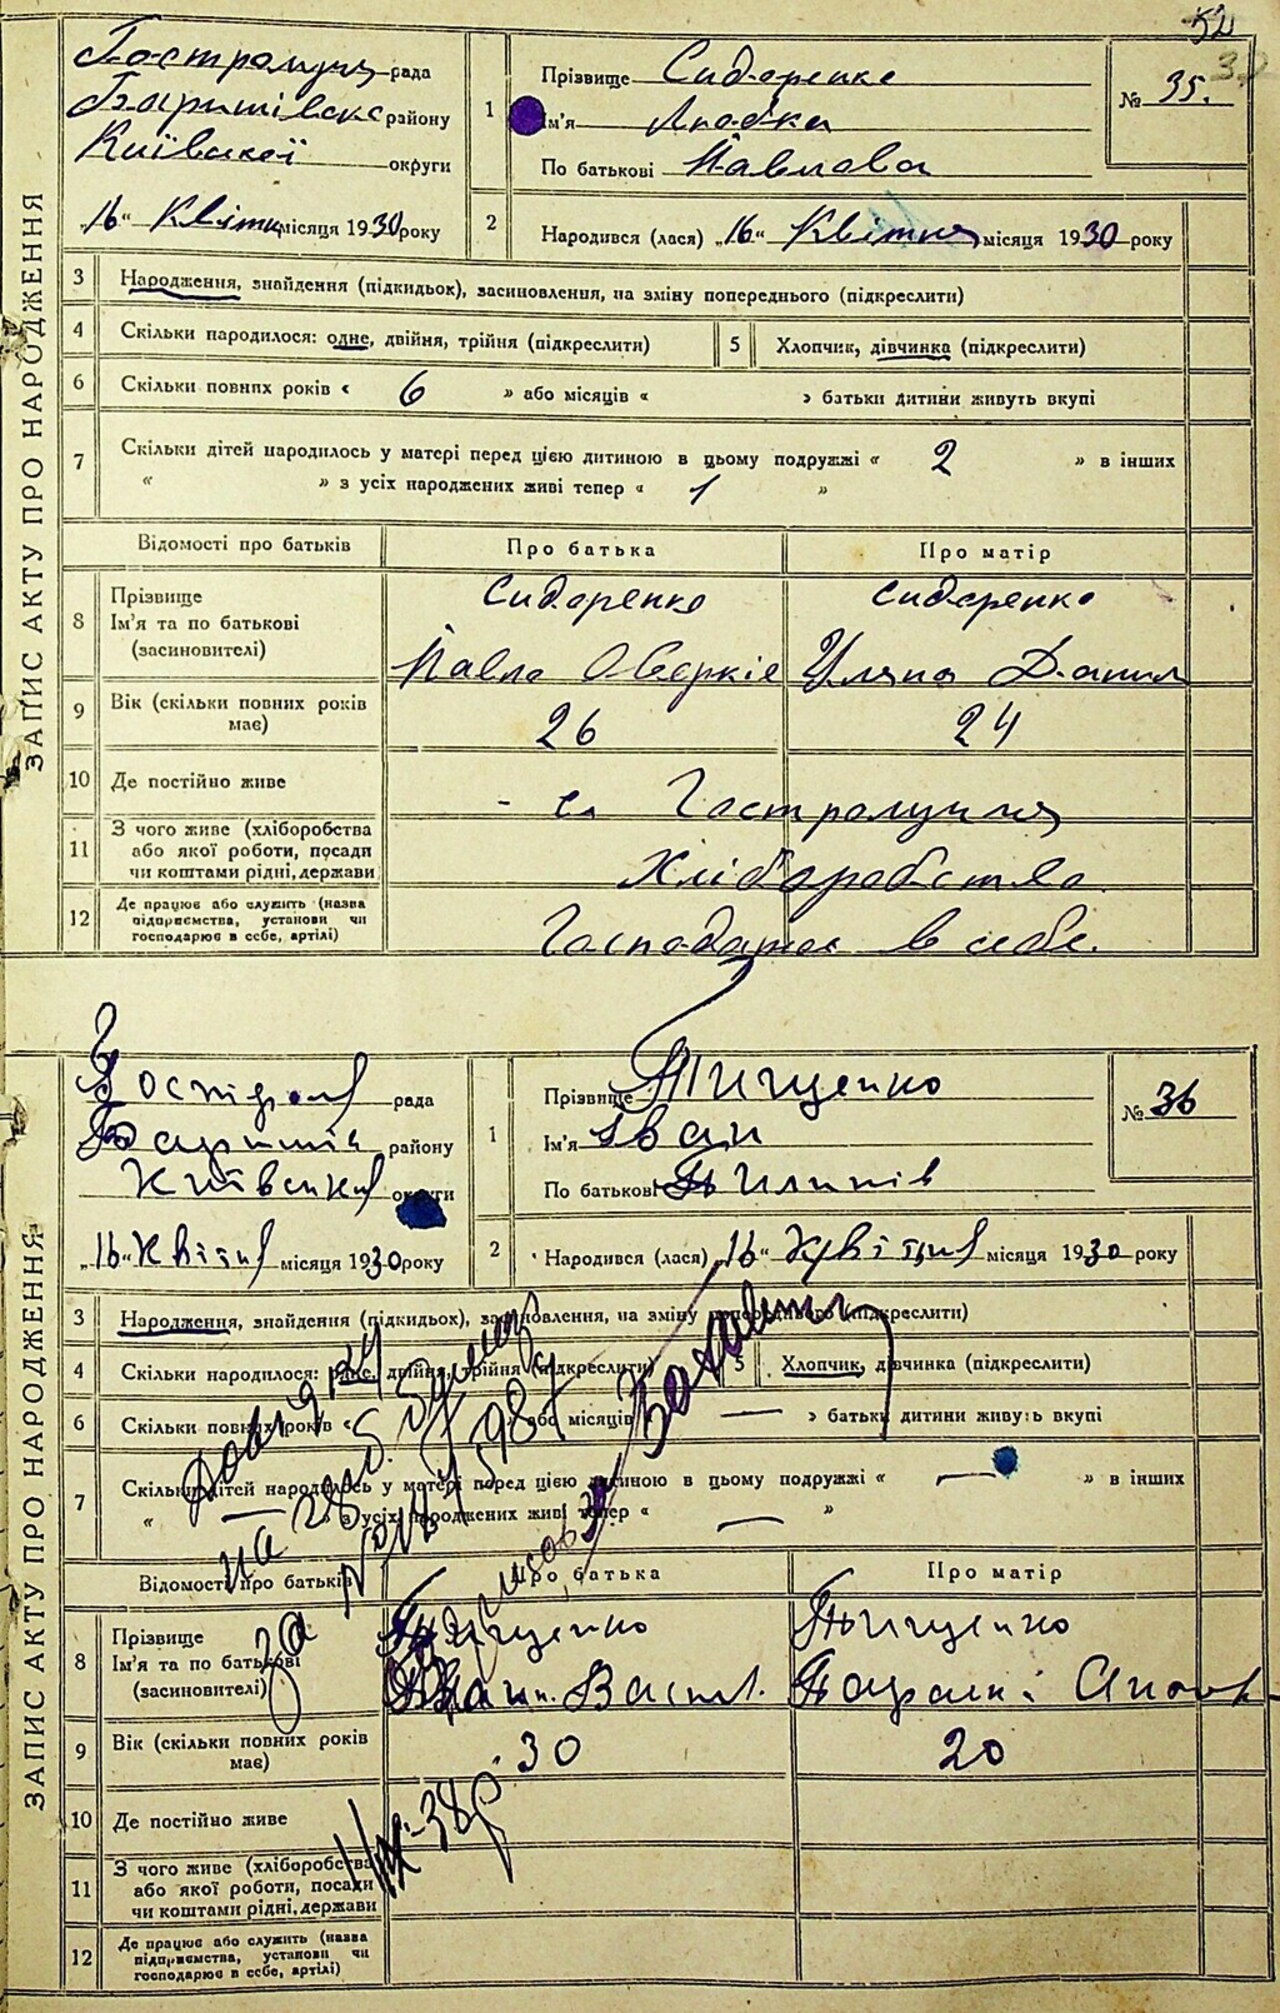 52
ЗАПИС АКТУ ПРО НАРОДЖЕННЯ
рада
району
Київської округи
„16“ Квітня місяця 1930 року
1 Прізвище Сидоренко
Ім'я
По батькові Павлова
№ 35.
2 Народився (лася) „16“ Квітня місяця 1930 року
3 Народження, знайдення (підкидьок), засиновлення, на зміну попереднього (підкреслити)
4 Скільки народилося: одне, двійня, трійня (підкреслити)
5 Хлопчик, дівчинка (підкреслити)
6 Скільки повних років « 6 » або місяців « » батьки дитини живуть вкупі
7 Скільки дітей народилось у матері перед цією дитиною в цьому подружжі « 2 » в інших
« » з усіх народжених живі тепер « 1 »
Відомості про батьків Про батька Про матір
8 Прізвище
Ім'я та по батькові
(засиновителі)
Сидоренко
Павло Оверкіє
Сидоренко
Уляна Данил
9 Вік (скільки повних років має) 26 24
10 Де постійно живе
11 З чого живе (хліборобства або якої роботи, посади чи коштами рідні, держави Хліборобство
12 Де працює або служить (назва підприємства, установи чи господарює в себе, артілі) Господарює в себе.
ЗАПИС АКТУ ПРО НАРОДЖЕННЯ
рада
району
округи
„16“ Квітня місяця 1930 року
1 Прізвище Тищенко
Ім'я Іван
По батькові Пилипів
№ 36
2 Народився (лася) „16“ Квітня місяця 1930 року
3 Народження, знайдення (підкидьох), засиновлення, на зміну попереднього (підкреслити)
4 Скільки народилося: одне, двійня, трійня (підкреслити)
5 Хлопчик, дівчинка (підкреслити)
6 Скільки повних років « » або місяців « — » батьки дитини живуть вкупі
7 Скільки дітей народилось у матері перед цією дитиною в цьому подружжі « — » в інших
« — » з усіх народжених живі тепер « — »
Відомості про батьків Про батька Про матір
8 Прізвище
Ім'я та по батькові
(засиновителі)
Тищенко
Васил.
Тищенко
9 Вік (скільки повних років має) 30 20
10 Де постійно живе
11 З чого живе (хліборобства або якої роботи, посади чи коштами рідні, держави
12 Де працює або служить (назва підприємства, установи чи господарює в себе, артілі)